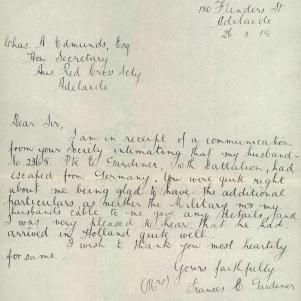 180 Flinders St
Adelaide
26.3.18
Chas. A Edmunds, Esq
Hon. Secretary
Aus Red Cross Scty
Adelaide
Dear Sir,
I am in receipt of a communication
from your Society intimating that my husband-
No. 2365. Pte E. Gardiner, Battalion, had
escaped from Germany. You were quite right
about me being glad to have the additional
particulars, as neither the Military nor my
husbands cable to me gave any details, and
I was very pleased to hear that he had
arrived in Holland quite well.
I wish to thank you most heartily
for same.
Yours faithfully
(Mrs) Frances E Gardiner